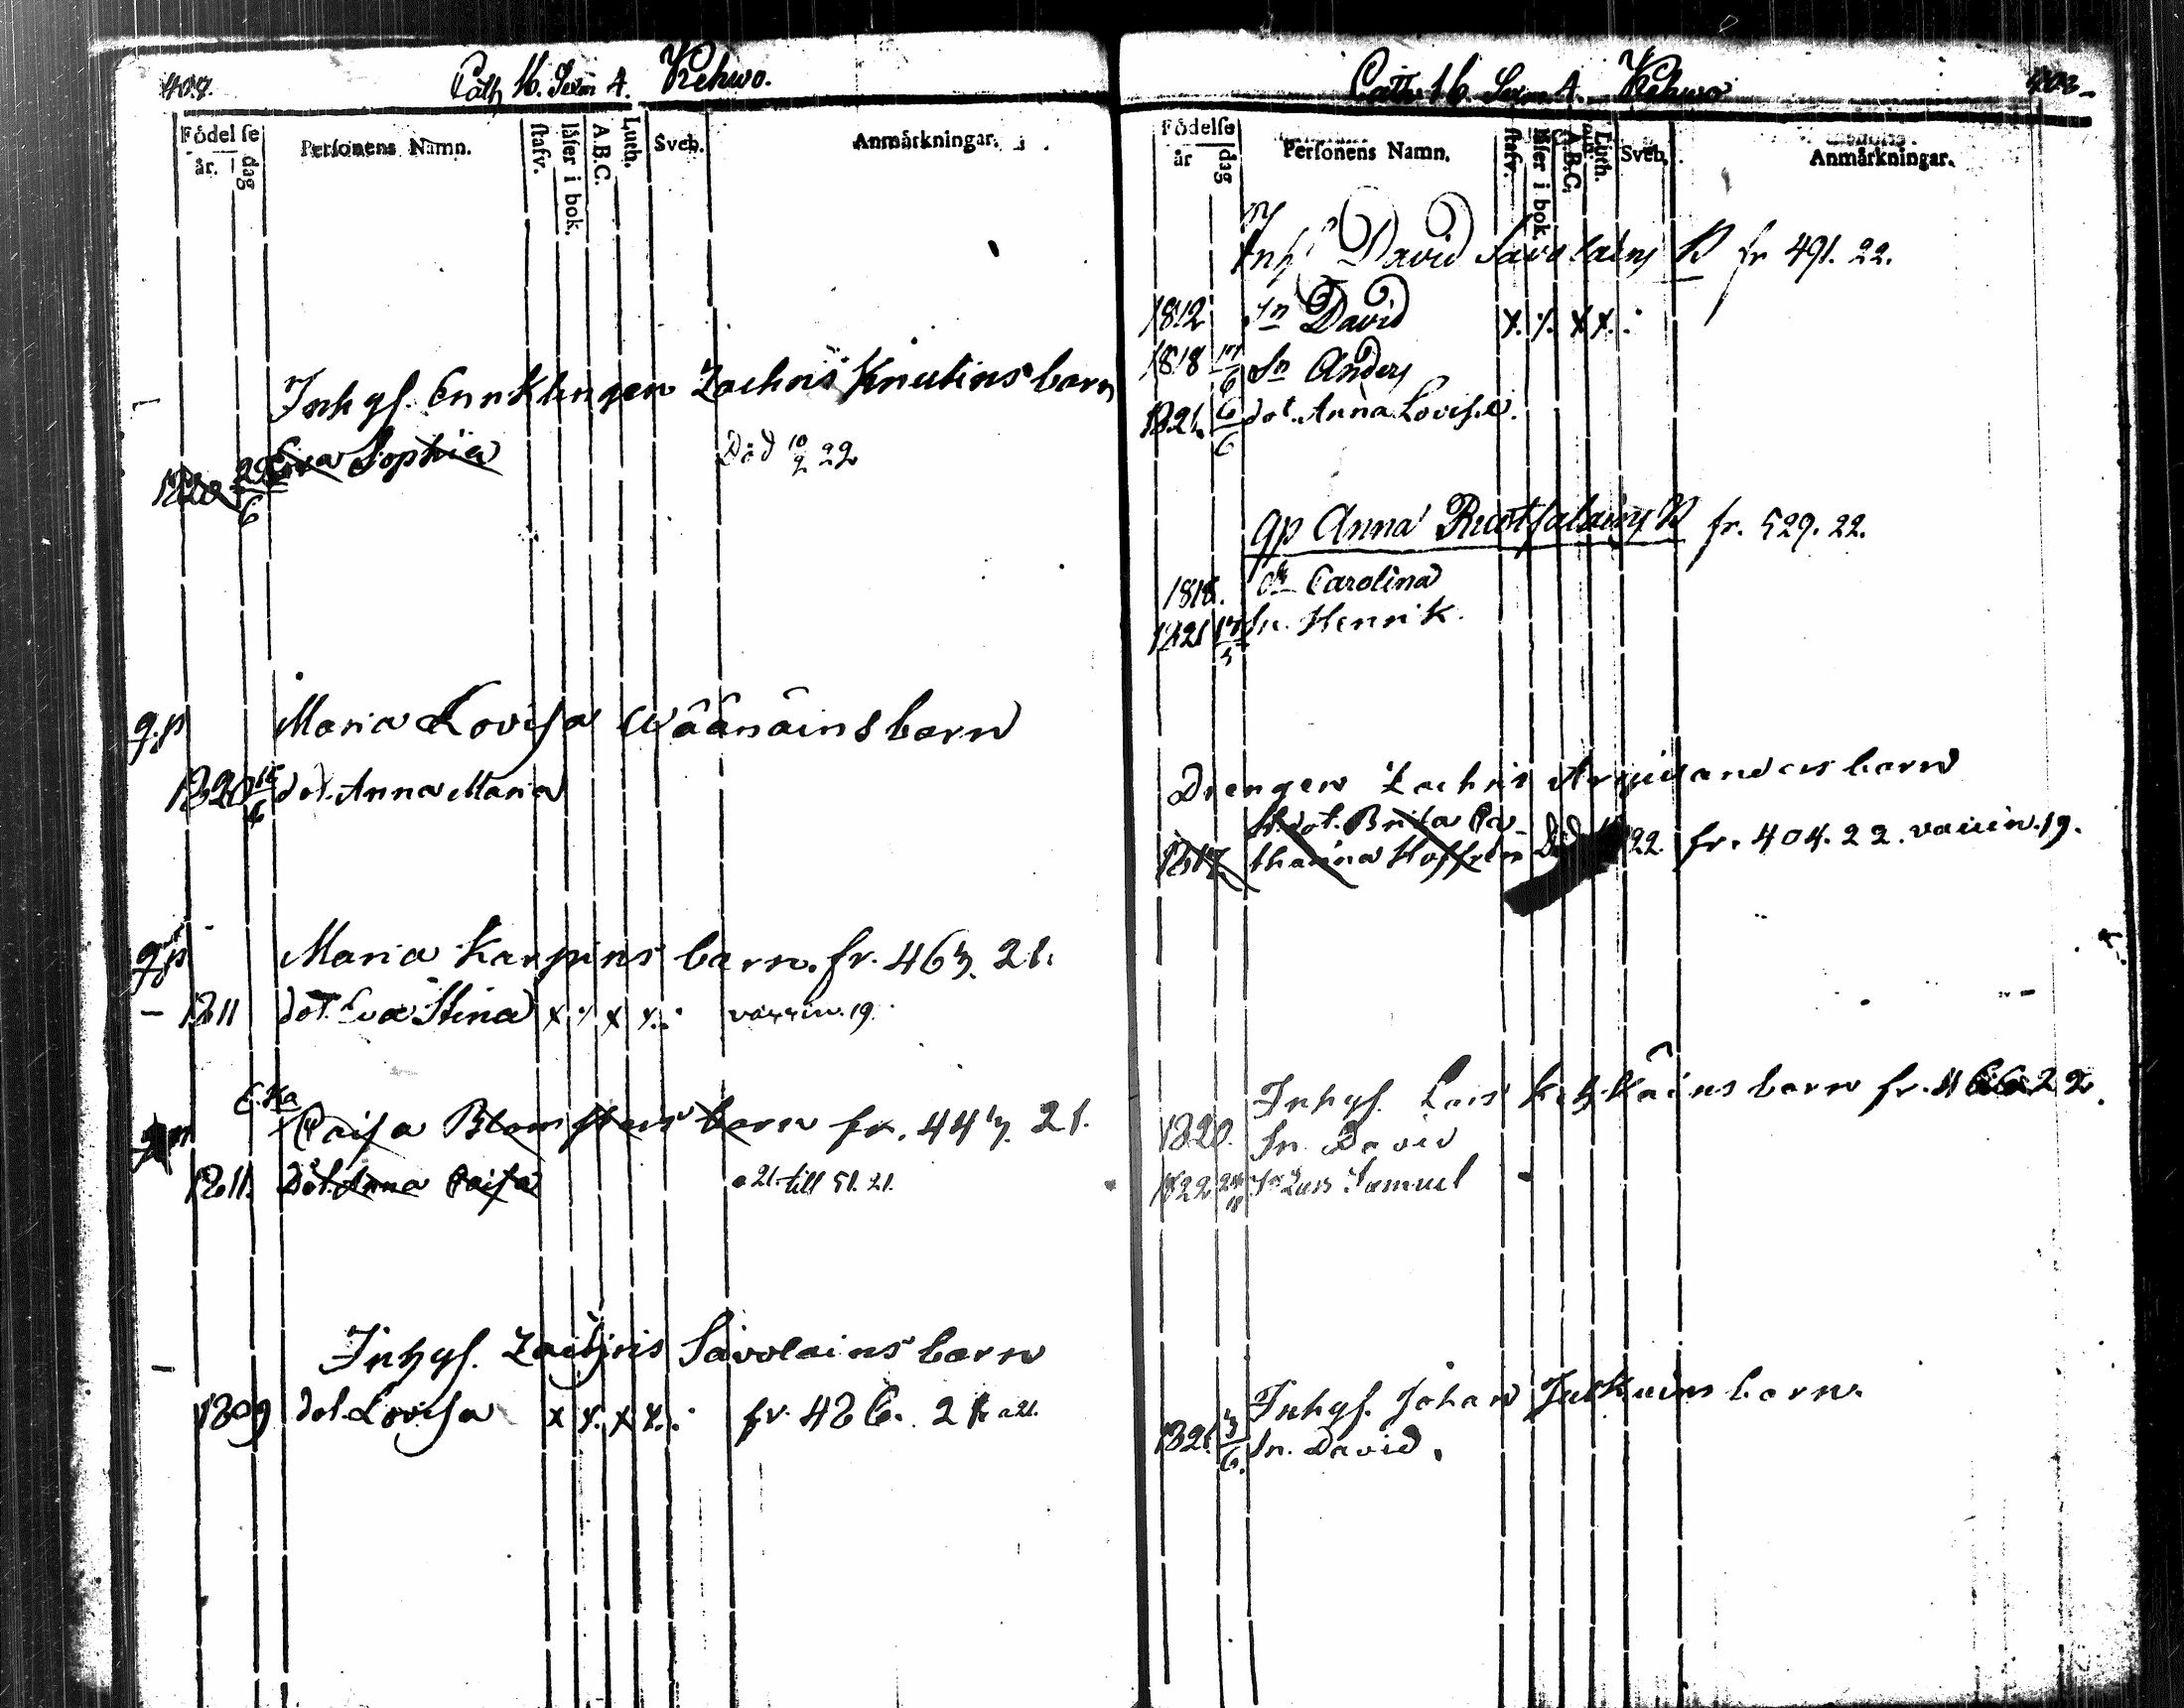 407.
Cath 16. Sexm A. Kehwo.
Födelse
år.
dag
Personens Namn.
stafv.
läser i bok.
A.B.C.
Luth.
Sveb.
Anmärkningar.
Inhys. Zachris Knutins barn
1820 Eva Sophia Död 10/2 22
6
g.p Maria Lovisa Wäänäins barn
1820 dot. Anna Maria
g.p Maria Karpins barn. fr. 467. 21.
1811 dot. Eva Stina x x x x. : 19.
E. Ka
Caisa barn fr. 447. 21.
1811. Dot. Anna Caisa a 21. till 51. 21.
Inhys. Zachris Savolains barn
1809 dot. Lovisa x x. x x. : fr. 486. 21. a 21.
Cath. 16. Sexm A. Kehwo
408
Födelse
år
dag
Personens Namn.
stafv.
läser i bok.
A.B.C.
Luth.
Sveb.
Anmärkningar.
Inh. David Savolains B fr 491. 22.
1812 Sn David x. x. x x. :
1818 17/6 Sn Anders
1821. 6/6 dot. Anna Lovisa.
gp Anna Ruotsalains B fr. 529. 22.
1818. Carolina
1821 17/5 Sn. Henrik.
Drengen Zachris barn
dot. Brita Ca-
1817 tharina Hoffrén Död 22. fr. 404. 22. 19.
Inhys. Lars barn fr. 22.
1820. Sn. David
1822 Sn Lars Samuel
Inhys. Johan barn.
1821. 3/6. Sn. David.